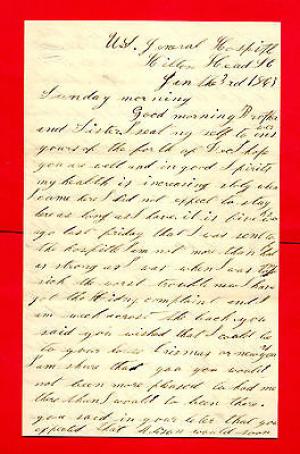 U.S. General Hospitle
Hilton Head SC
Jan the 3rd 1865
Sunday morning
Good morning Brother
and Sister I seat my self to ans
wer
yours of the forth of Dec I hope
you are well and in good spirits
my health is increasing sloly when
I came here I did not expect to stay
here as long as I have it is five
ago last friday that I was sent to
the hospitle I am not more than half
as strong as I was when I was
sick the worst trouble now I have
got the Kidny complaint and I
am weak across the back you
said you wished that I could be
to your house Crismus or new years
I am shure that you would
not been more pleased to had me
there than I would to been there.
you said in your leter that you
expected that would soon